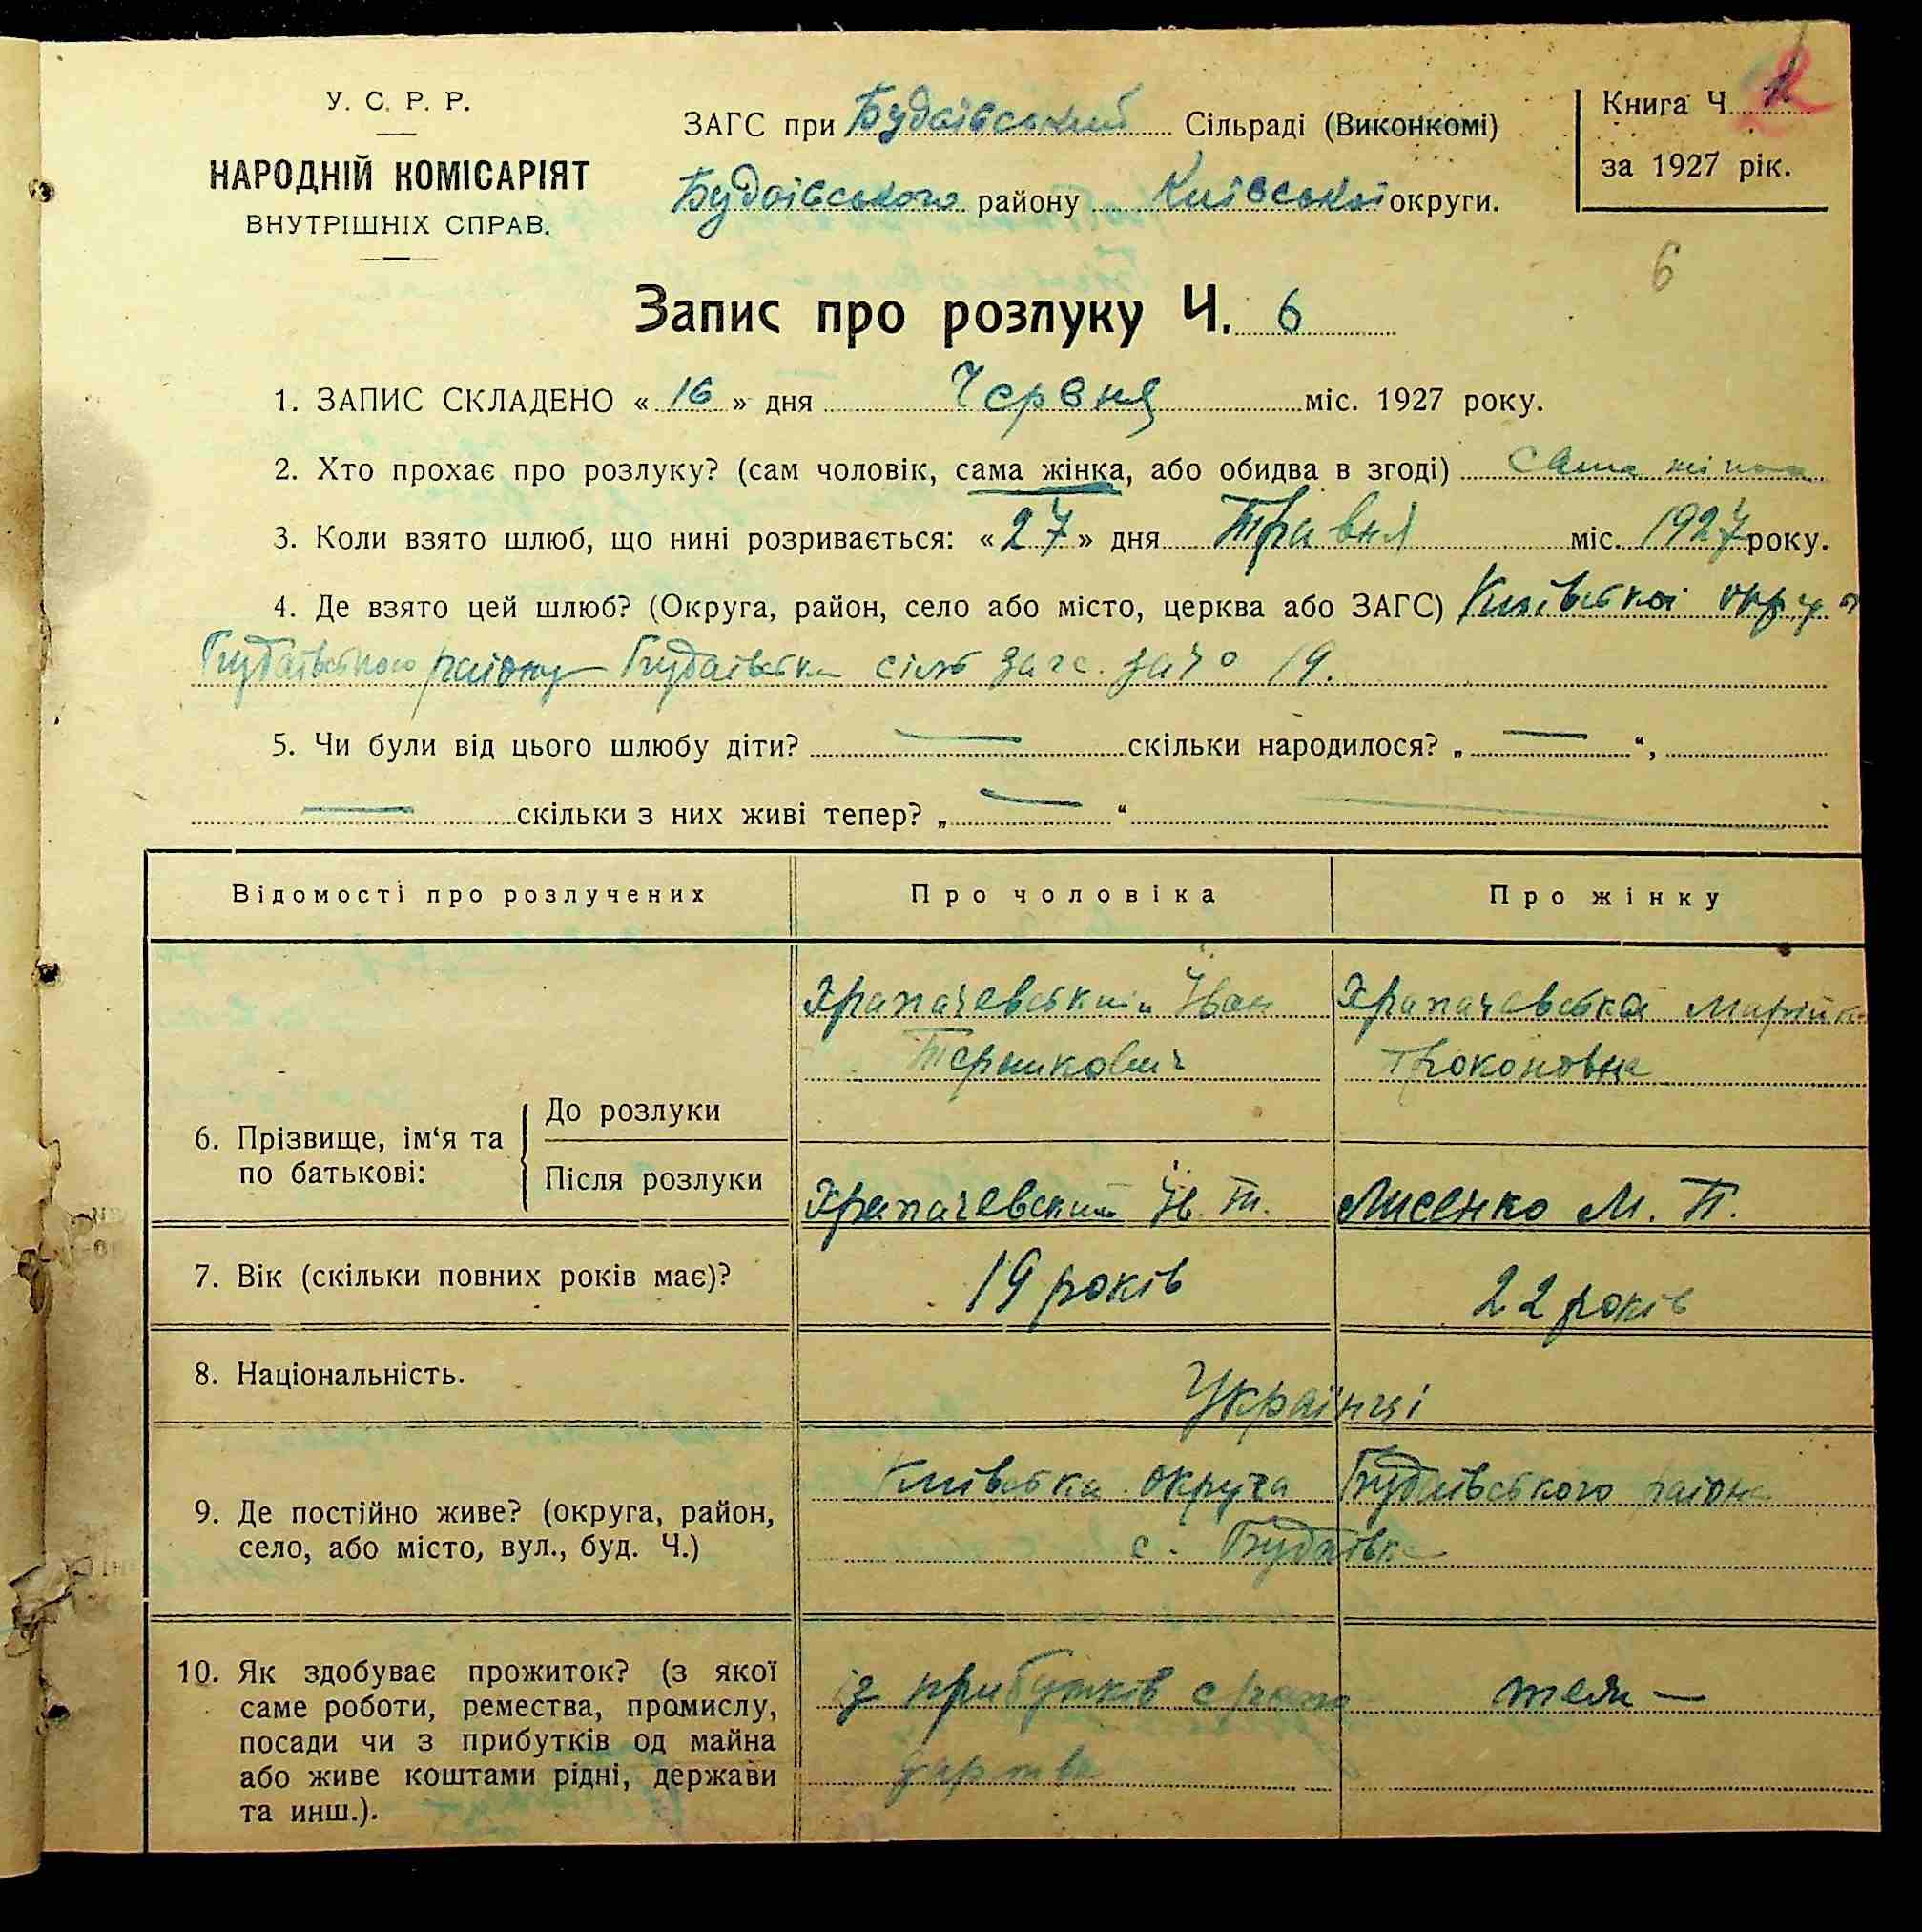 У. С. Р. Р.
НАРОДНІЙ КОМІСАРІЯТ
ВНУТРІШНІХ СПРАВ.
ЗАГС при Будаївський Сільраді (Виконкомі)
Будаївського району Київської округи.
Книга Ч.
за 1927 рік.
6
Запис про розлуку Ч. 6
1. ЗАПИС СКЛАДЕНО « 16 » дня Червня міс. 1927 року.
2. Хто прохає про розлуку? (сам чоловік, сама жінка, або обидва в згоді) сама жінка
3. Коли взято шлюб, що нині розривається: « 27 » дня Травня міс. 1927 року.
4. Де взято цей шлюб? (Округа, район, село або місто, церква або ЗАГС) Київської округи
Будаївського району Будаївська сіль загс. за 19.
5. Чи були від цього шлюбу діти? — скільки народилося? „ — “,
— скільки з них живі тепер? „ — “
Відомості про розлучених Про чоловіка Про жінку
Храпачевський Іван Храпачевська Марія
Прокоповна
6. Прізвище, ім‘я та по батькові:
До розлуки
Після розлуки Храпачевский Ів. Т. Лисенко М. П.
7. Вік (скільки повних років має)? 19 років 22 років
8. Національність. Українці
9. Де постійно живе? (округа, район, Київська округа Будаївського района
село, або місто, вул., буд. Ч.) с. Будаївка
10. Як здобуває прожиток? (з якої
саме роботи, ремества, промислу, із прибутків с теж —
посади чи з прибутків од майна
або живе коштами рідні, держави дарства
та инш.).